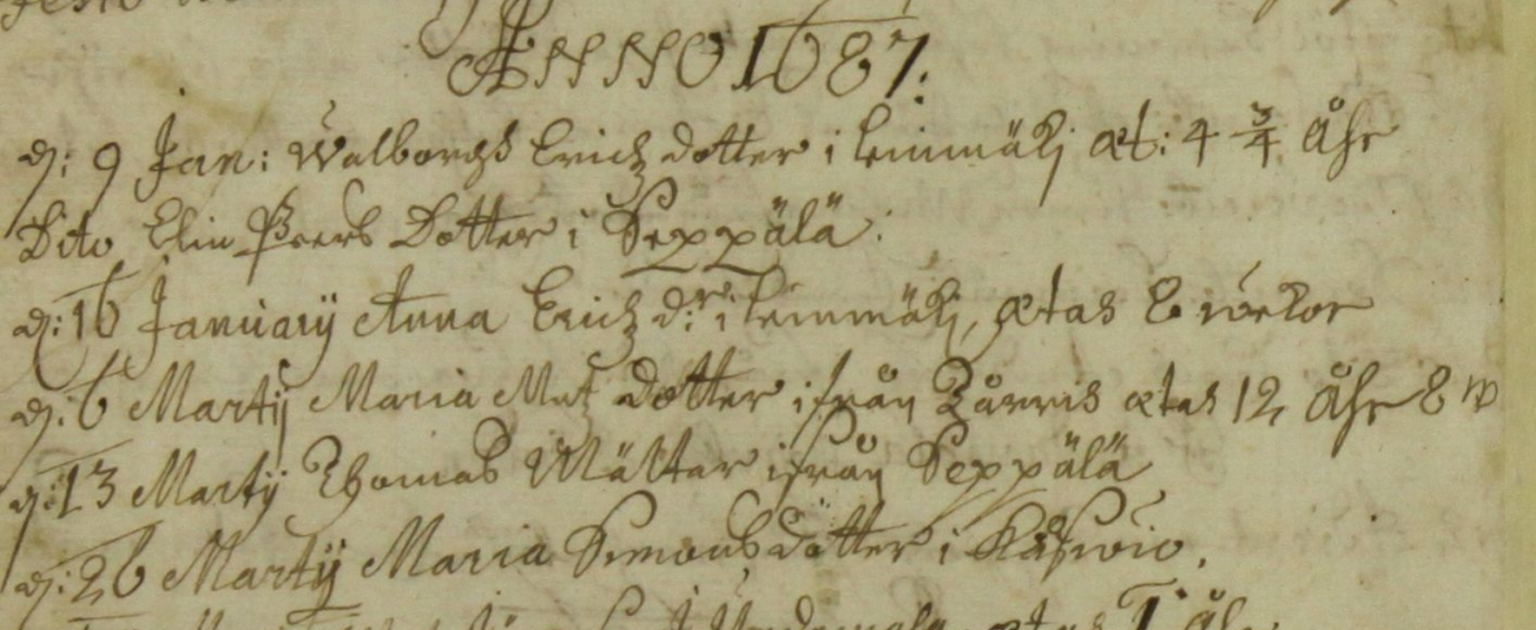 ANNO 1687.
d: 9 Jan: Walborgh Erichz dotter i Leinmäkj æt: 4 3/4 Åhr
Dito Elin Peers Dotter i Seppälä.
d: 16 Januarij Anna Erichz d:r i Leinmäkj, ætas 6 wekor
d: 6 Martij Maria Mat dotter ifrån ætas 12 Åhr 8 w
d: 13 Martij Thomas Mältar ifrån Seppälä
d: 26 Martij Maria Simons dotter i
ætas 1 Åhr